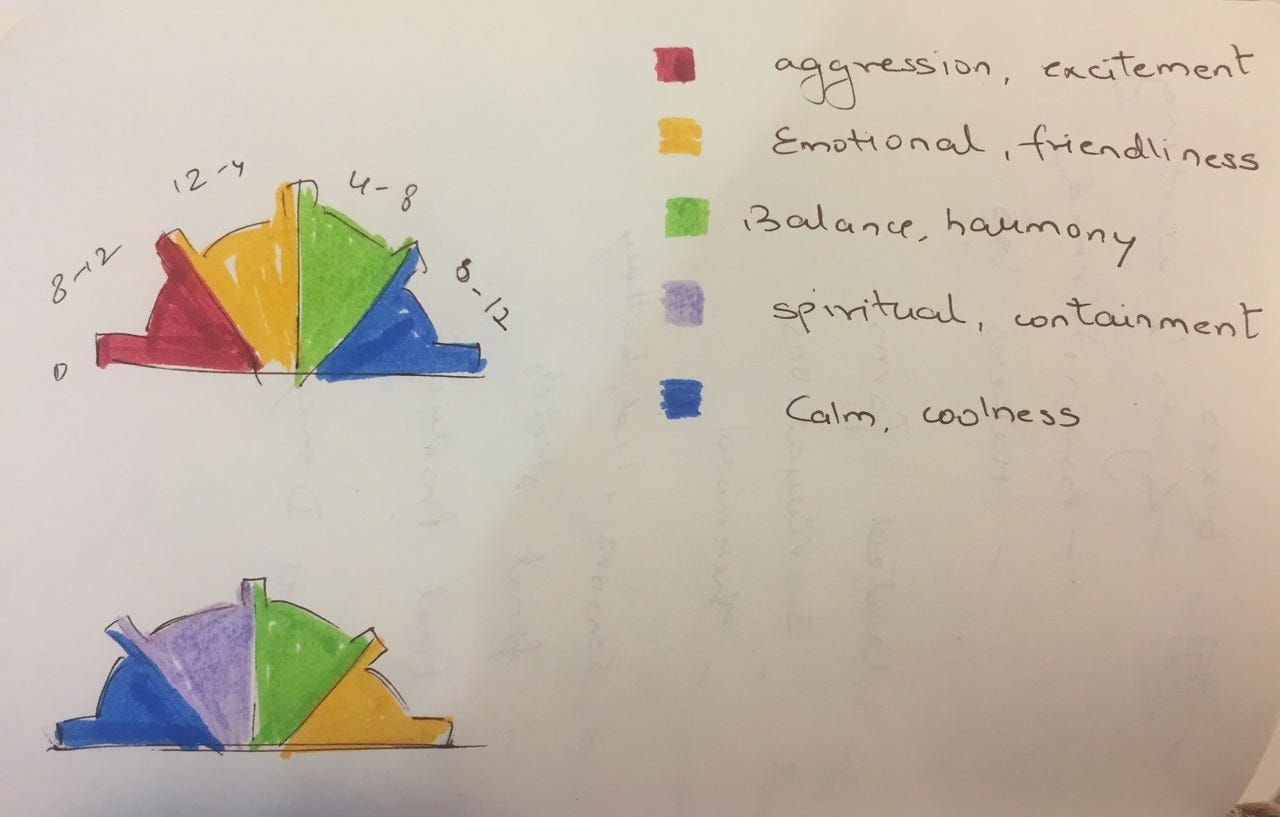 aggression, excitement
Emotional, friendliness
Balance, harmony
spiritual, containment
Calm, coolness
12-4
4-8
8-12
8-12
0